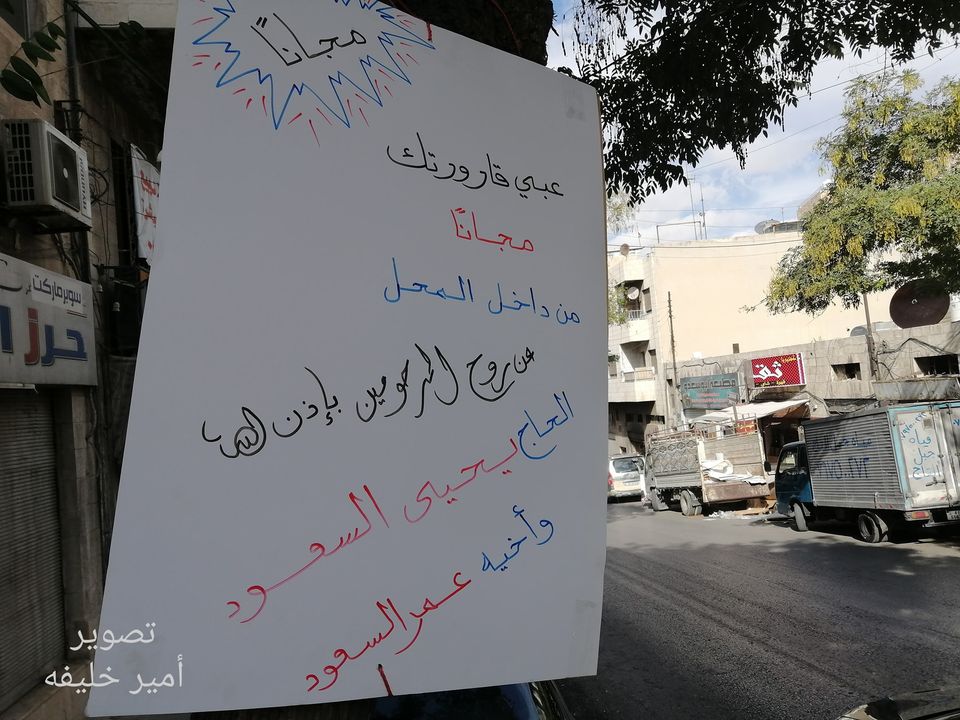 مجاناً
عبي قارورتك
مجانًا
من داخل المحل
عن روح المرحومين بإذن الله
الحاج يحيى السعود
وأخيه عمر السعود
تصوير
أمير خليفه
سوبرماركت
حرز
ثقة
مياه
جبل